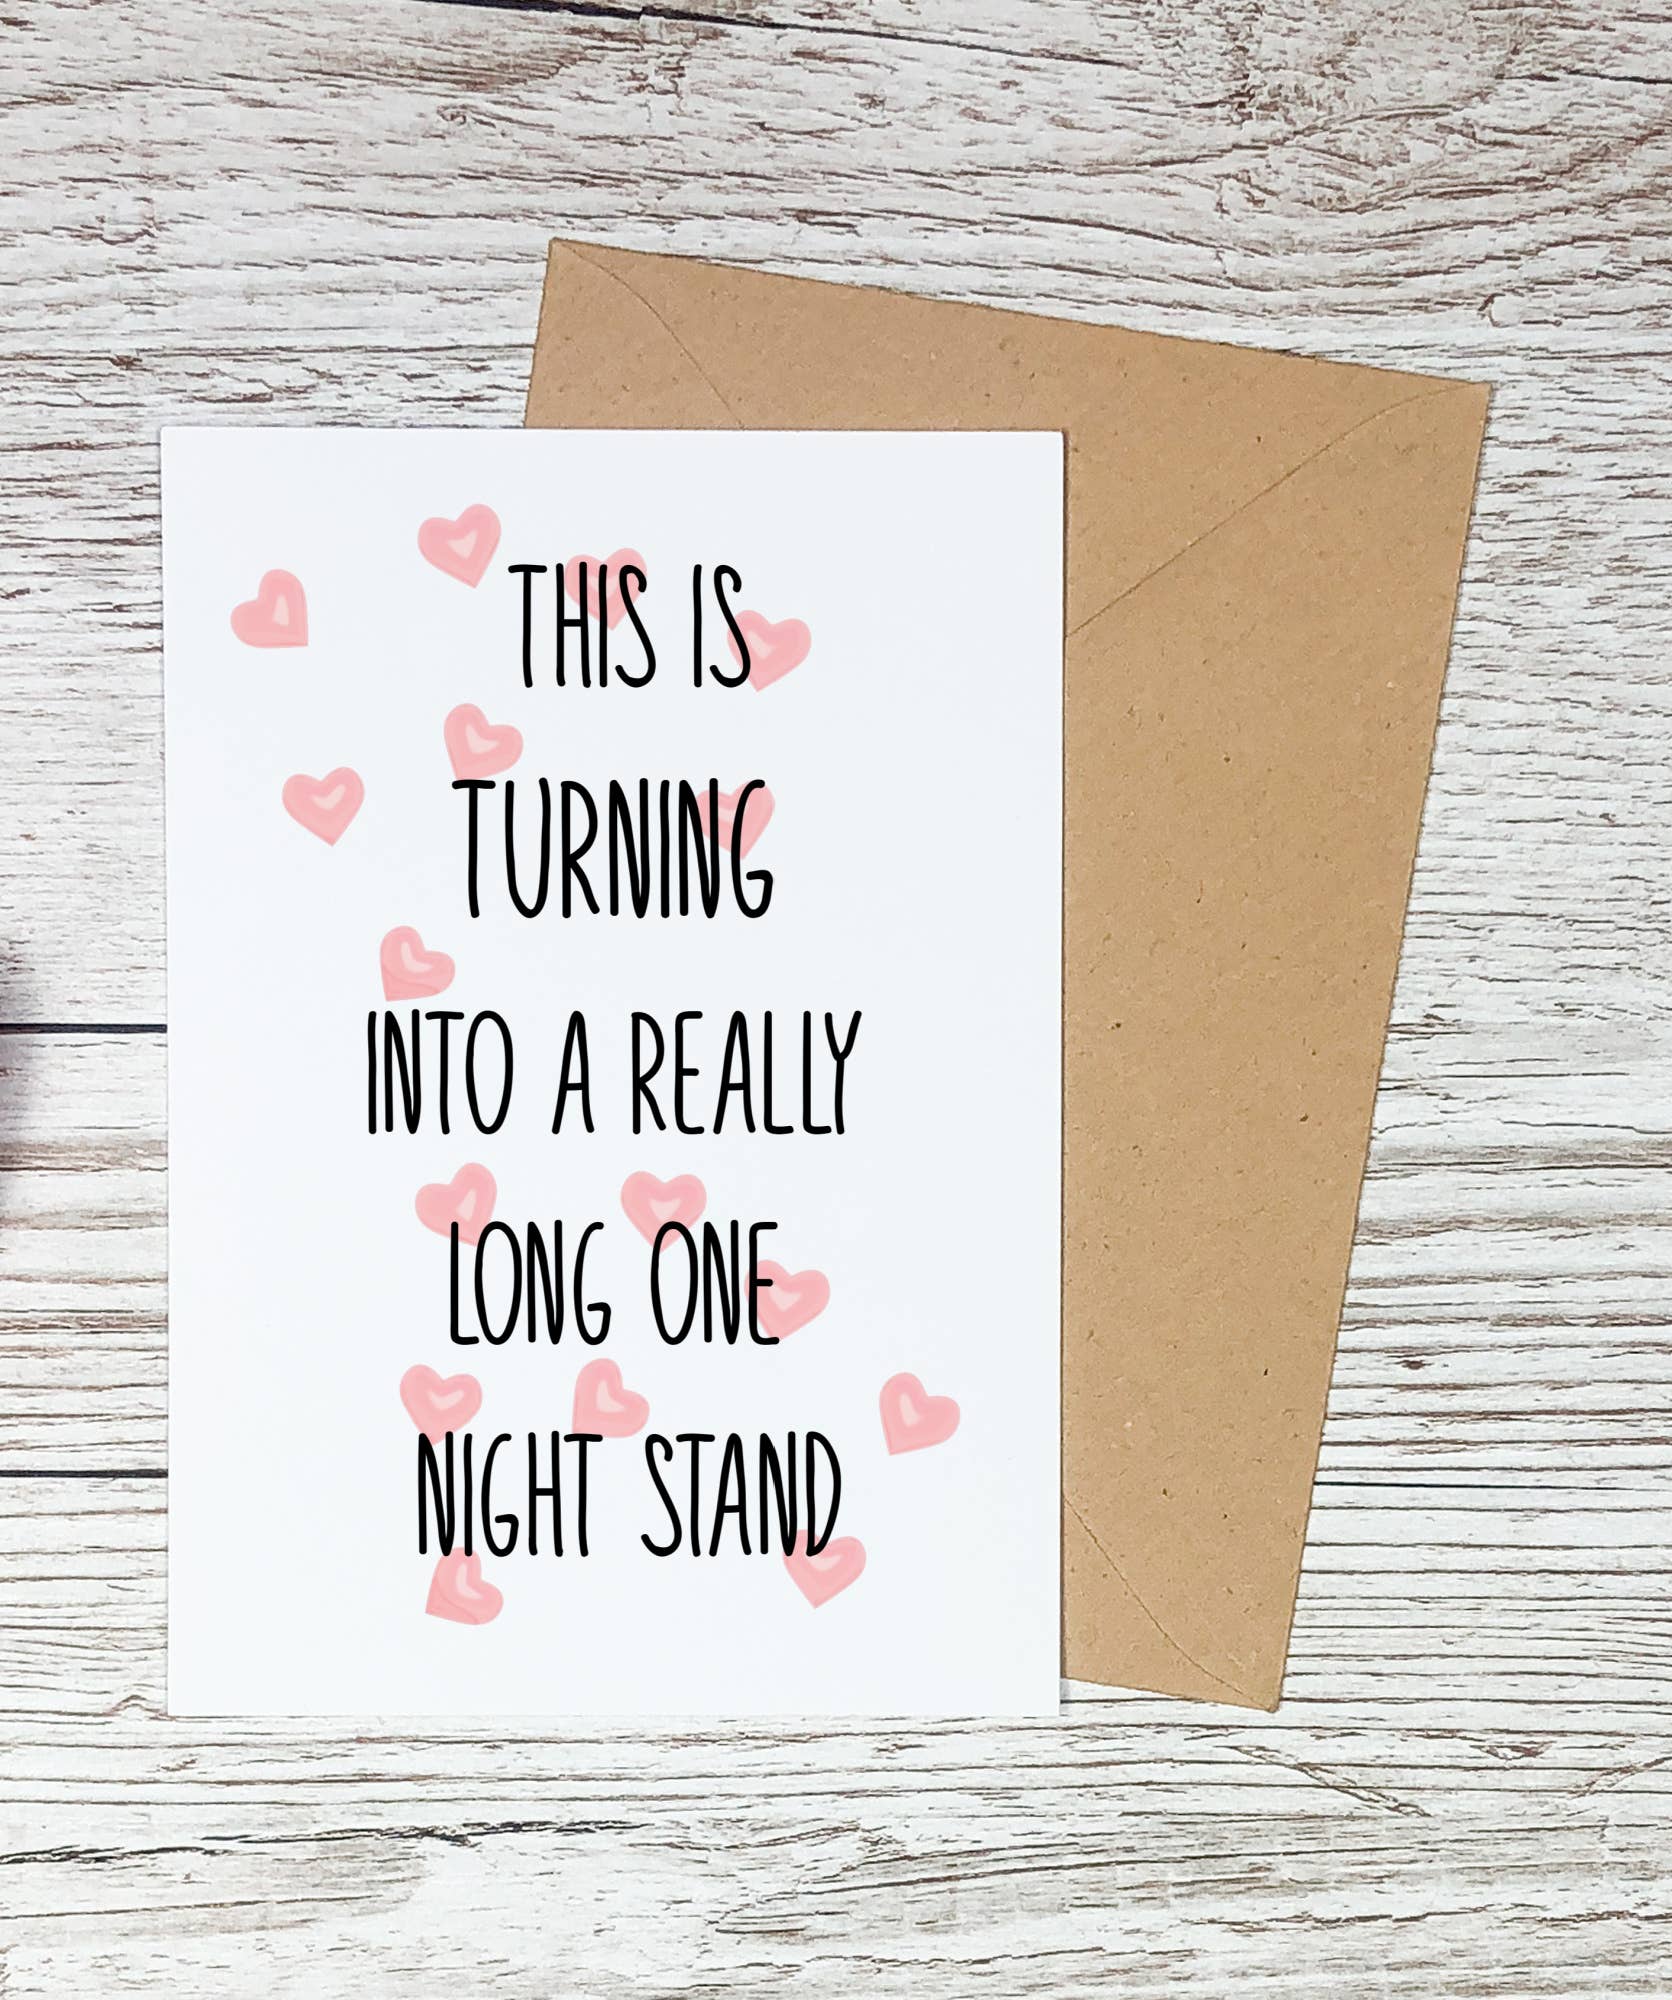 THIS IS
TURNING
INTO A REALLY
LONG ONE
NIGHT STAND